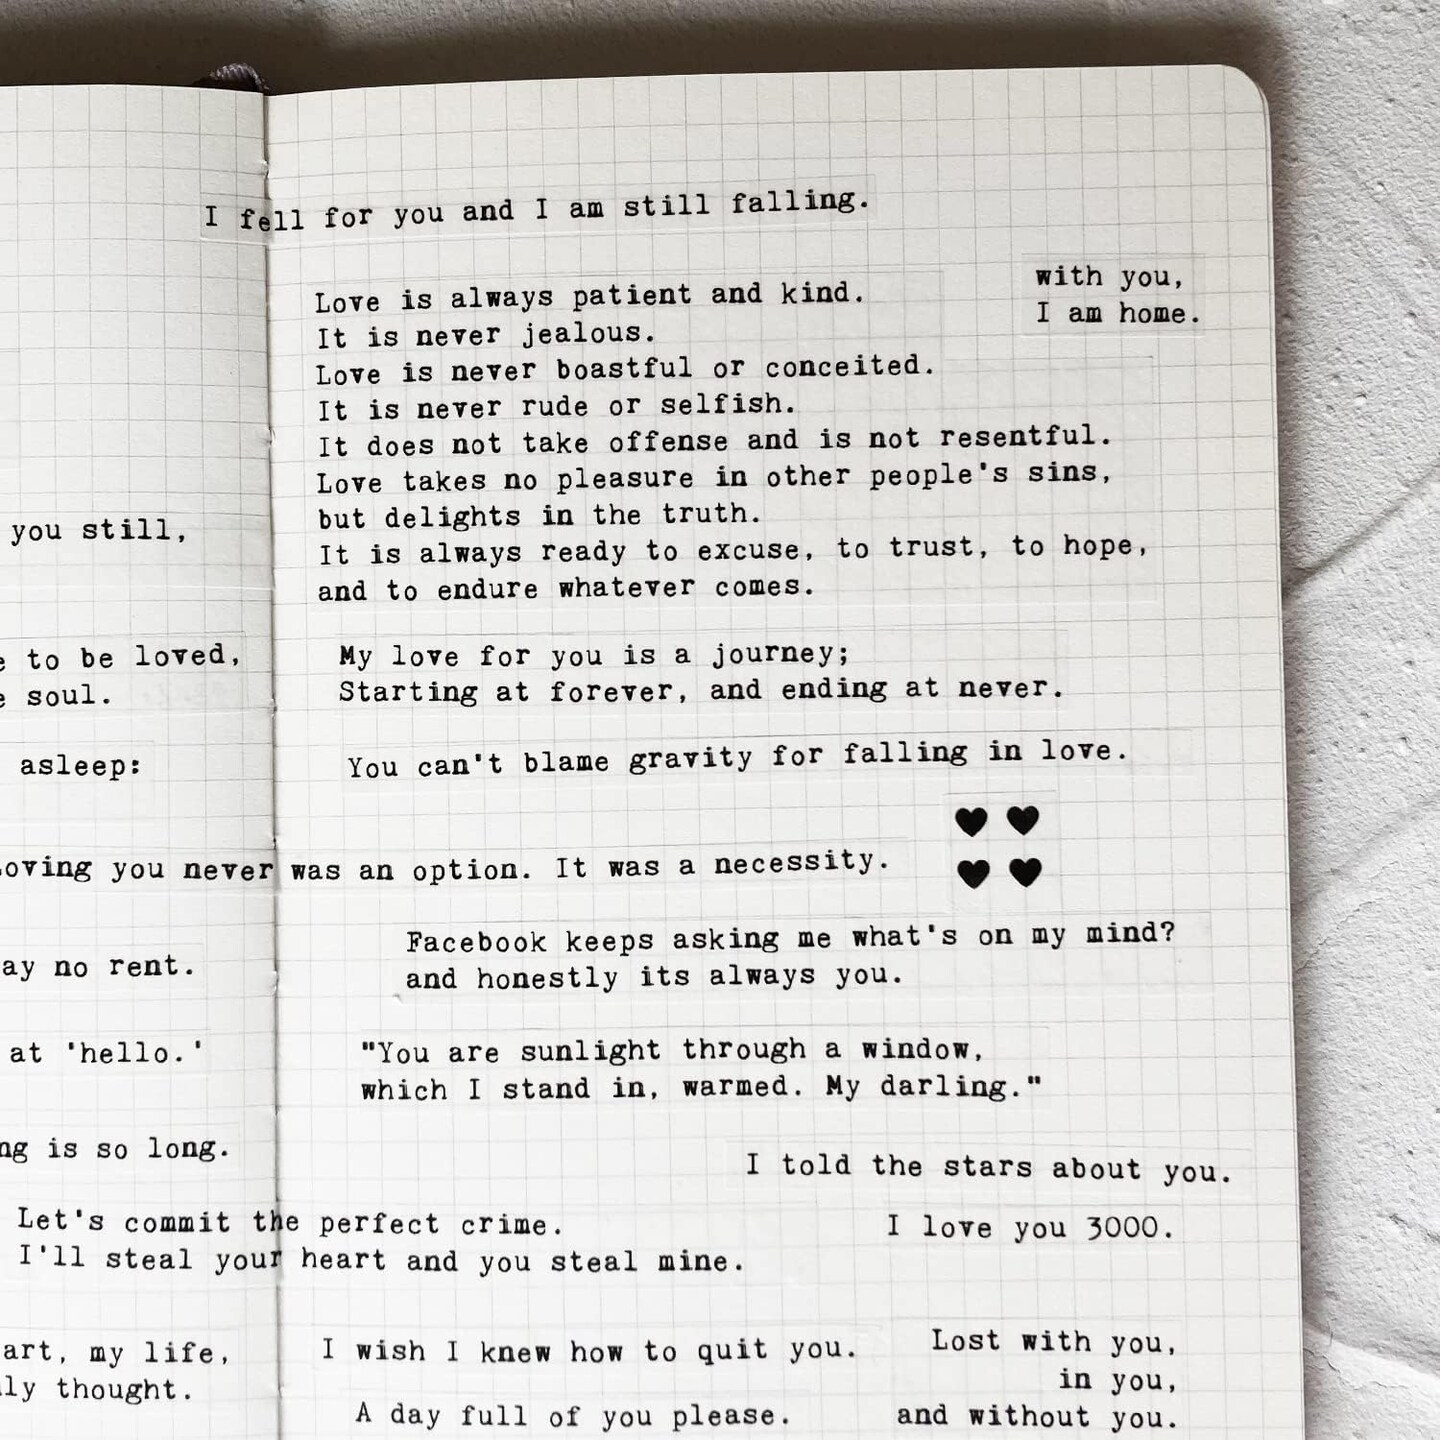 I fell for you and I am still falling.
with you,
I am home.
Love is always patient and kind.
It is never jealous.
Love is never boastful or conceited.
It is never rude or selfish.
It does not take offense and is not resentful.
Love takes no pleasure in other people's sins,
but delights in the truth.
It is always ready to excuse, to trust, to hope,
and to endure whatever comes.
you still,
to be loved,
soul.
asleep:
My love for you is a journey;
Starting at forever, and ending at never.
You can't blame gravity for falling in love.
oving you never was an option. It was a necessity.
Facebook keeps asking me what's on my mind?
and honestly its always you.
ay no rent.
at 'hello.'
"You are sunlight through a window,
which I stand in, warmed. My darling."
ng is so long.
I told the stars about you.
Let's commit the perfect crime.
I'll steal your heart and you steal mine.
I love you 3000.
art, my life,
ly thought.
I wish I knew how to quit you.
A day full of you please.
Lost with you,
in you,
and without you.